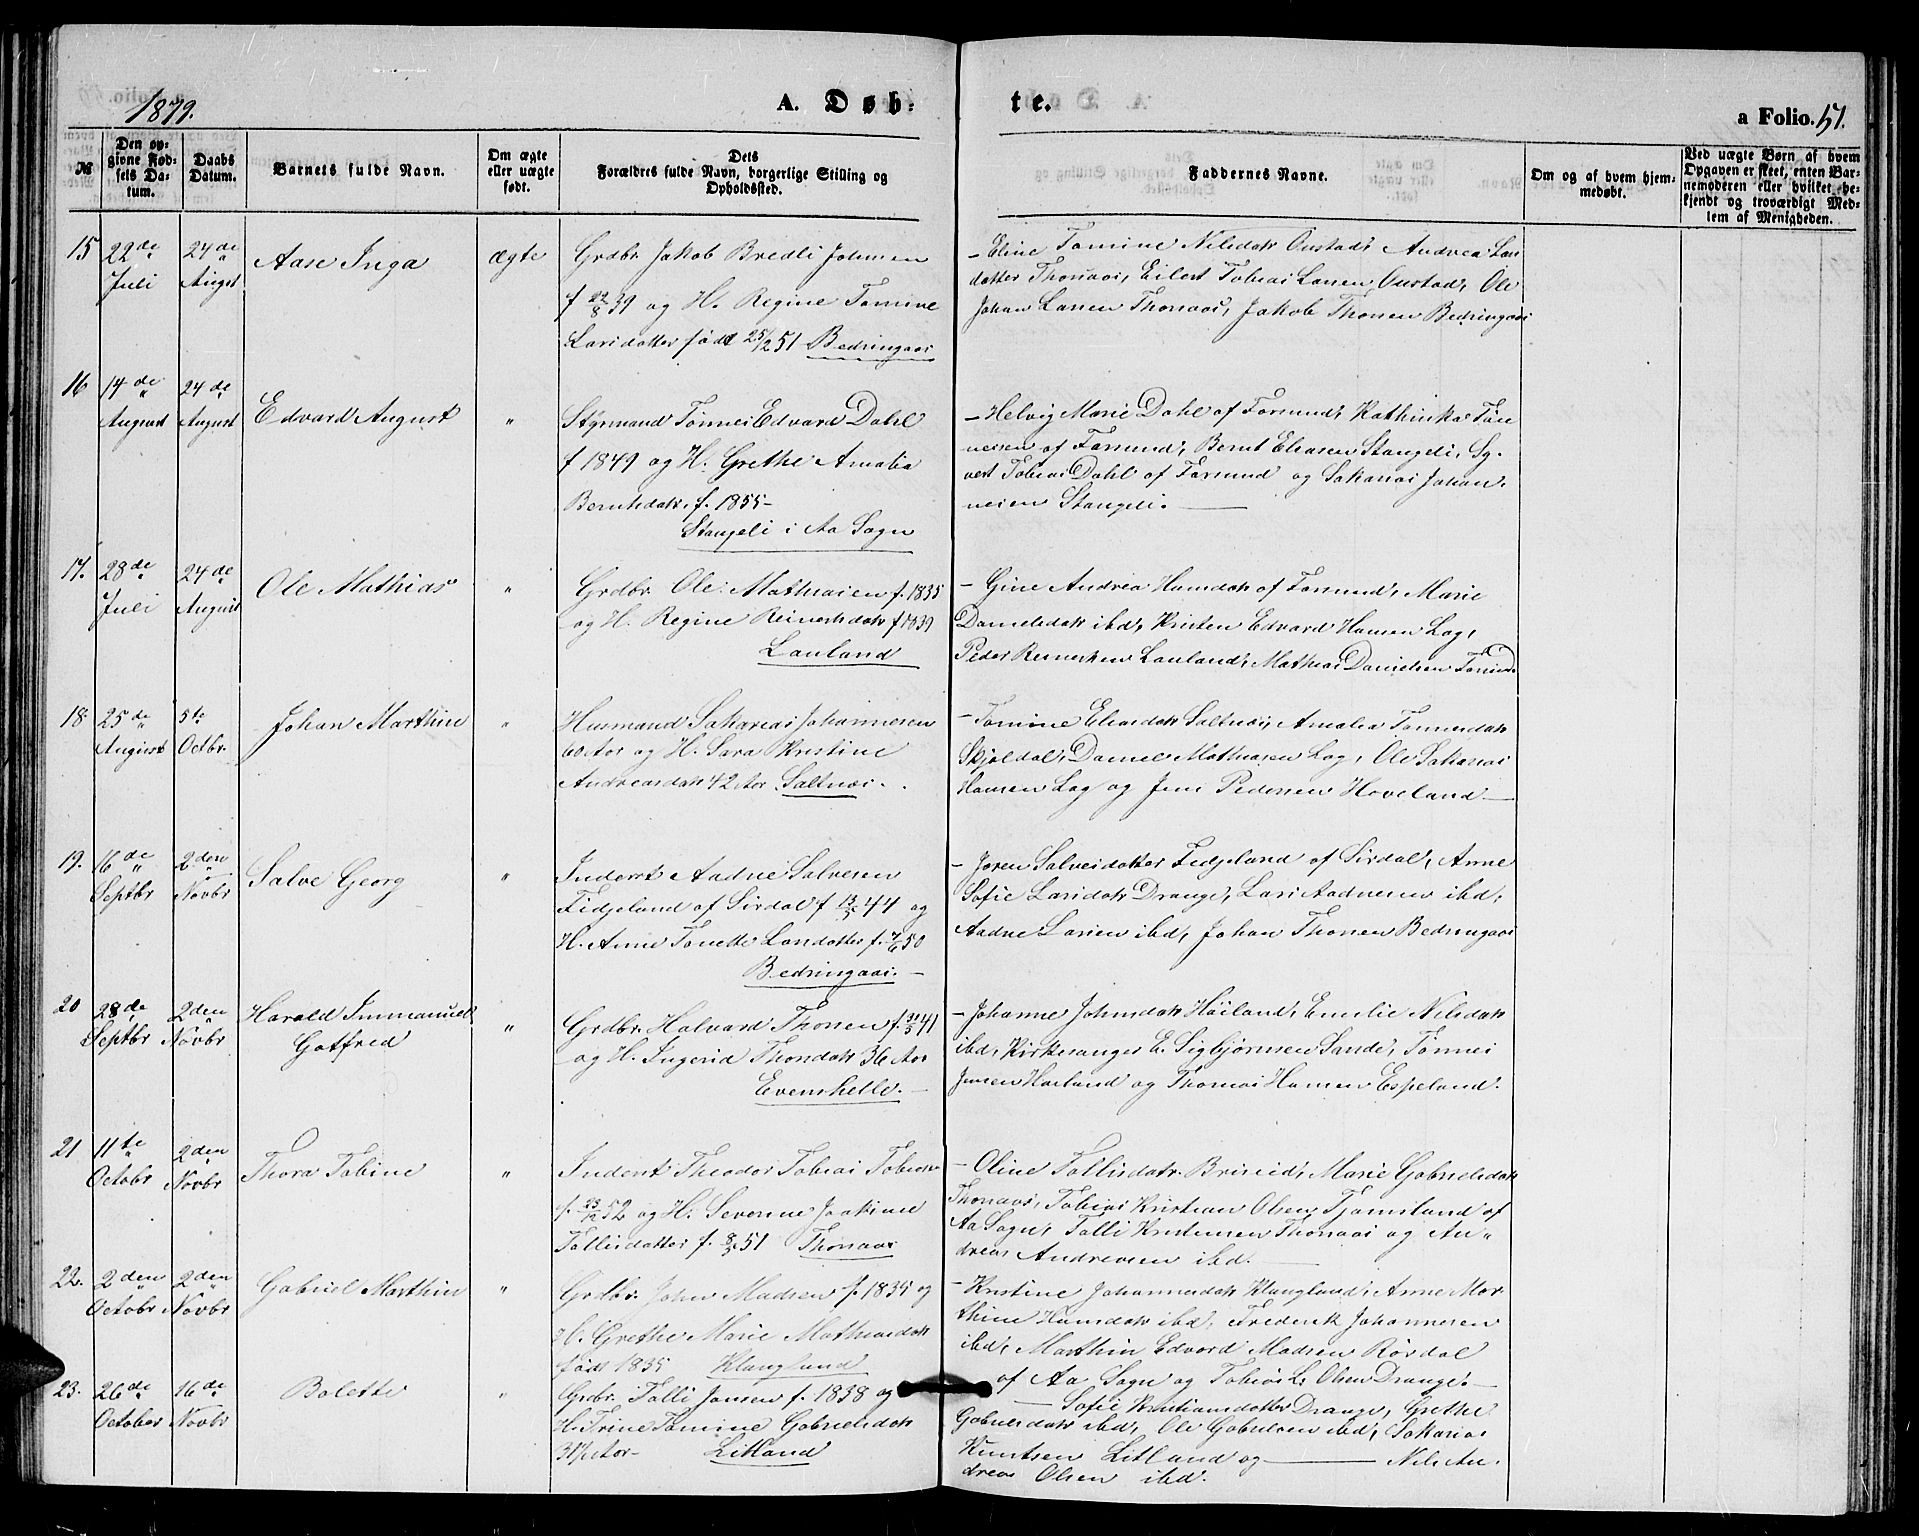 1879.
A. Døb-
te.
a Folio. 51.
№
Den op-
givne Fød-
sels Da-
tum.
Daabs
Datum.
Barnets fulde Navn.
Om ægte
eller uægte
født.
Dets
Forældres fulde Navn, borgerlige Stilling og
Opholdssted.
Faddernes Navne.
Om og af hvem hjem-
medøbt.
Ved uægte Børn af hvem
Opgaven er skeet, enten Bar-
nemoderen eller hvilket be-
kjendt og troværdigt Med-
lem af Menigheden.
15
22de
Juli
24de
August
Aase Inga
ægte
Grdbr. Jakob Bredli Johnsen
f 22/8 39 og H. Regine Tomine
Larsdatter født 25/12 51 Bedringaas
– Eline Tomine Nilsdatr Oustad, Andrea Lars
datter Thonaas, Eilert Tobias Larsen Oustad, Ole
Johan Larsen Thonaas, Jakob Thorsen Bedringaas
16
14de
August
24de
August
Edvard August
"
Styrmand Tønnes Edvard Dahl
f 1849 og H. Grethe Amalia
Berntsdatr. f. 1855-
Stangeli i Aa Sogn
– Helvig Marie Dahl af Farsund, Kathinka Tøn
nesen af Farsund, Bernt Eliasen Stangeli, Sy-
vert Tobias Dahl af Farsund og Sakarias Johan-
nesen Stangeli.
17.
28de
Juli
24de
August
Ole Mathias
"
Grdbr. Ole Mathiasen f. 1835
og H. Regine Reinertsdatr f 1839
Lauland
– Gine Andrea Hansdatr af Farsund, Marie
Danielsdatr ibd, Kristen Edvard Hansen Log,
Peder Reinertsen Lauland, Mathias Danielsen Farsund
18.
25de
August
5te
Octbr.
Johan Marthin
"
Husmand Sakarias Johannesen
60 Aar og H. Sara Kristine
Andreasdatr 42 Aar Saltnæs.
– Tomine Eliasdatr Saltnæs, Amalia Tønnesdatr
Skjoldal, Daniel Mathiasen Log, Ole Sakarias
Hansen Log og Jens Pedersen Hoveland
19.
16de
Septbr
2den
Novbr
Salve Georg
"
Inderst Aadne Salvesen
Fidjeland af Sirdal f 13/5 44 og
H. Anne Tonette Larsdatter f. 7/6 50
Bedringaas.
– Joren Salvesdatter Fidjeland af Sirdal, Anne
Sofie Larsdatr Drange, Lars Aadnesen ibd,
Aadne Larsen ibd, Johan Thorsen Bedringaas
20
28de
Septbr
2den
Novbr
Harald Immanuel
Gotfred
"
Grdbr. Halvard Thorsen f. 31/5 41
og H. Ingerid Thorsdatr 36 Aar
Evenshelle.
– Johanne Johnsdatr Høiland, Emilie Nilsdatr
ibd, Kirkesanger E. Sigbjørnsen Sande, Tønnes
Jensen Høiland og Thomas Hansen Espeland.
21
11te
Octobr
2den
Novbr
Thora Tobine
"
Inderst Theodor Tobias Tobiasen
f. 23/12 52 og H. Severine Joakime
Tallisdatter f. 8/3 51 Thonaas
– Oline Tallisdatr. Briseid, Marie Gabrielsdatr
Thonaas, Tobias Kristian Olsen Tjomsland af
Aa Sogn, Talli Kristensen Thonaas og An-
dreas Andreasen ibd.
22.
2den
Octobr
2den
Novbr
Gabriel Marthin
"
Grdbr. John Madsen f. 1835 og
H. Grethe Marie Mathiasdatr
født 1835 Klungland
– Kristine Johannesdatr Klungland, Anne Mar
thine Hansdatr ibd, Frederik Johannesen
ibd, Marthin Edvard Madsen Rørdal
af Aa Sogn og Tobias L. Olsen Drange.
23.
26de
October
16de
Novbr
Bolette
"
Grdbr. Talli Jansen f. 1838 og
H. Trine Tomine Gabrielsdatr
31½ Aar- Litland
– Sofie Kristiansdatter Drange, Grethe
Gabrielsdatr ibd, Ole Gabrielsen ibd, Sakarias
Knutsen Litland og – Nils An-
dreas Olsen ibd.